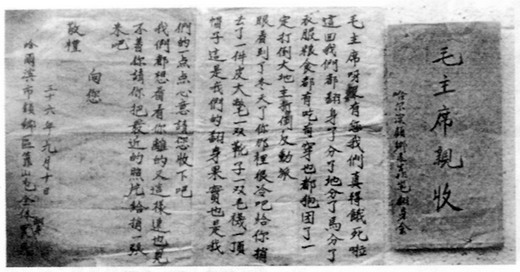 毛主席親收
毛主席呀沒有您我們真得餓死啦
這回我們都翻身了分了地分了馬分了
衣服粮食都有吃有穿也都抱团了一
定打倒大地主蔣 反動派
眼看到了冬天了你那裡很冷吧給你捎
去了一件皮大氅一双靴子一双毛襪一頂
帽子這是我們的翻身果實也是我
們的一点点心意請您收下吧
我們都想看看你離的又這樣遠也見
不着你請你把最近的照片給捎一張
来吧
向您
敬禮
三十六年九月十日
哈爾濱市顧鄉區靠山屯全体